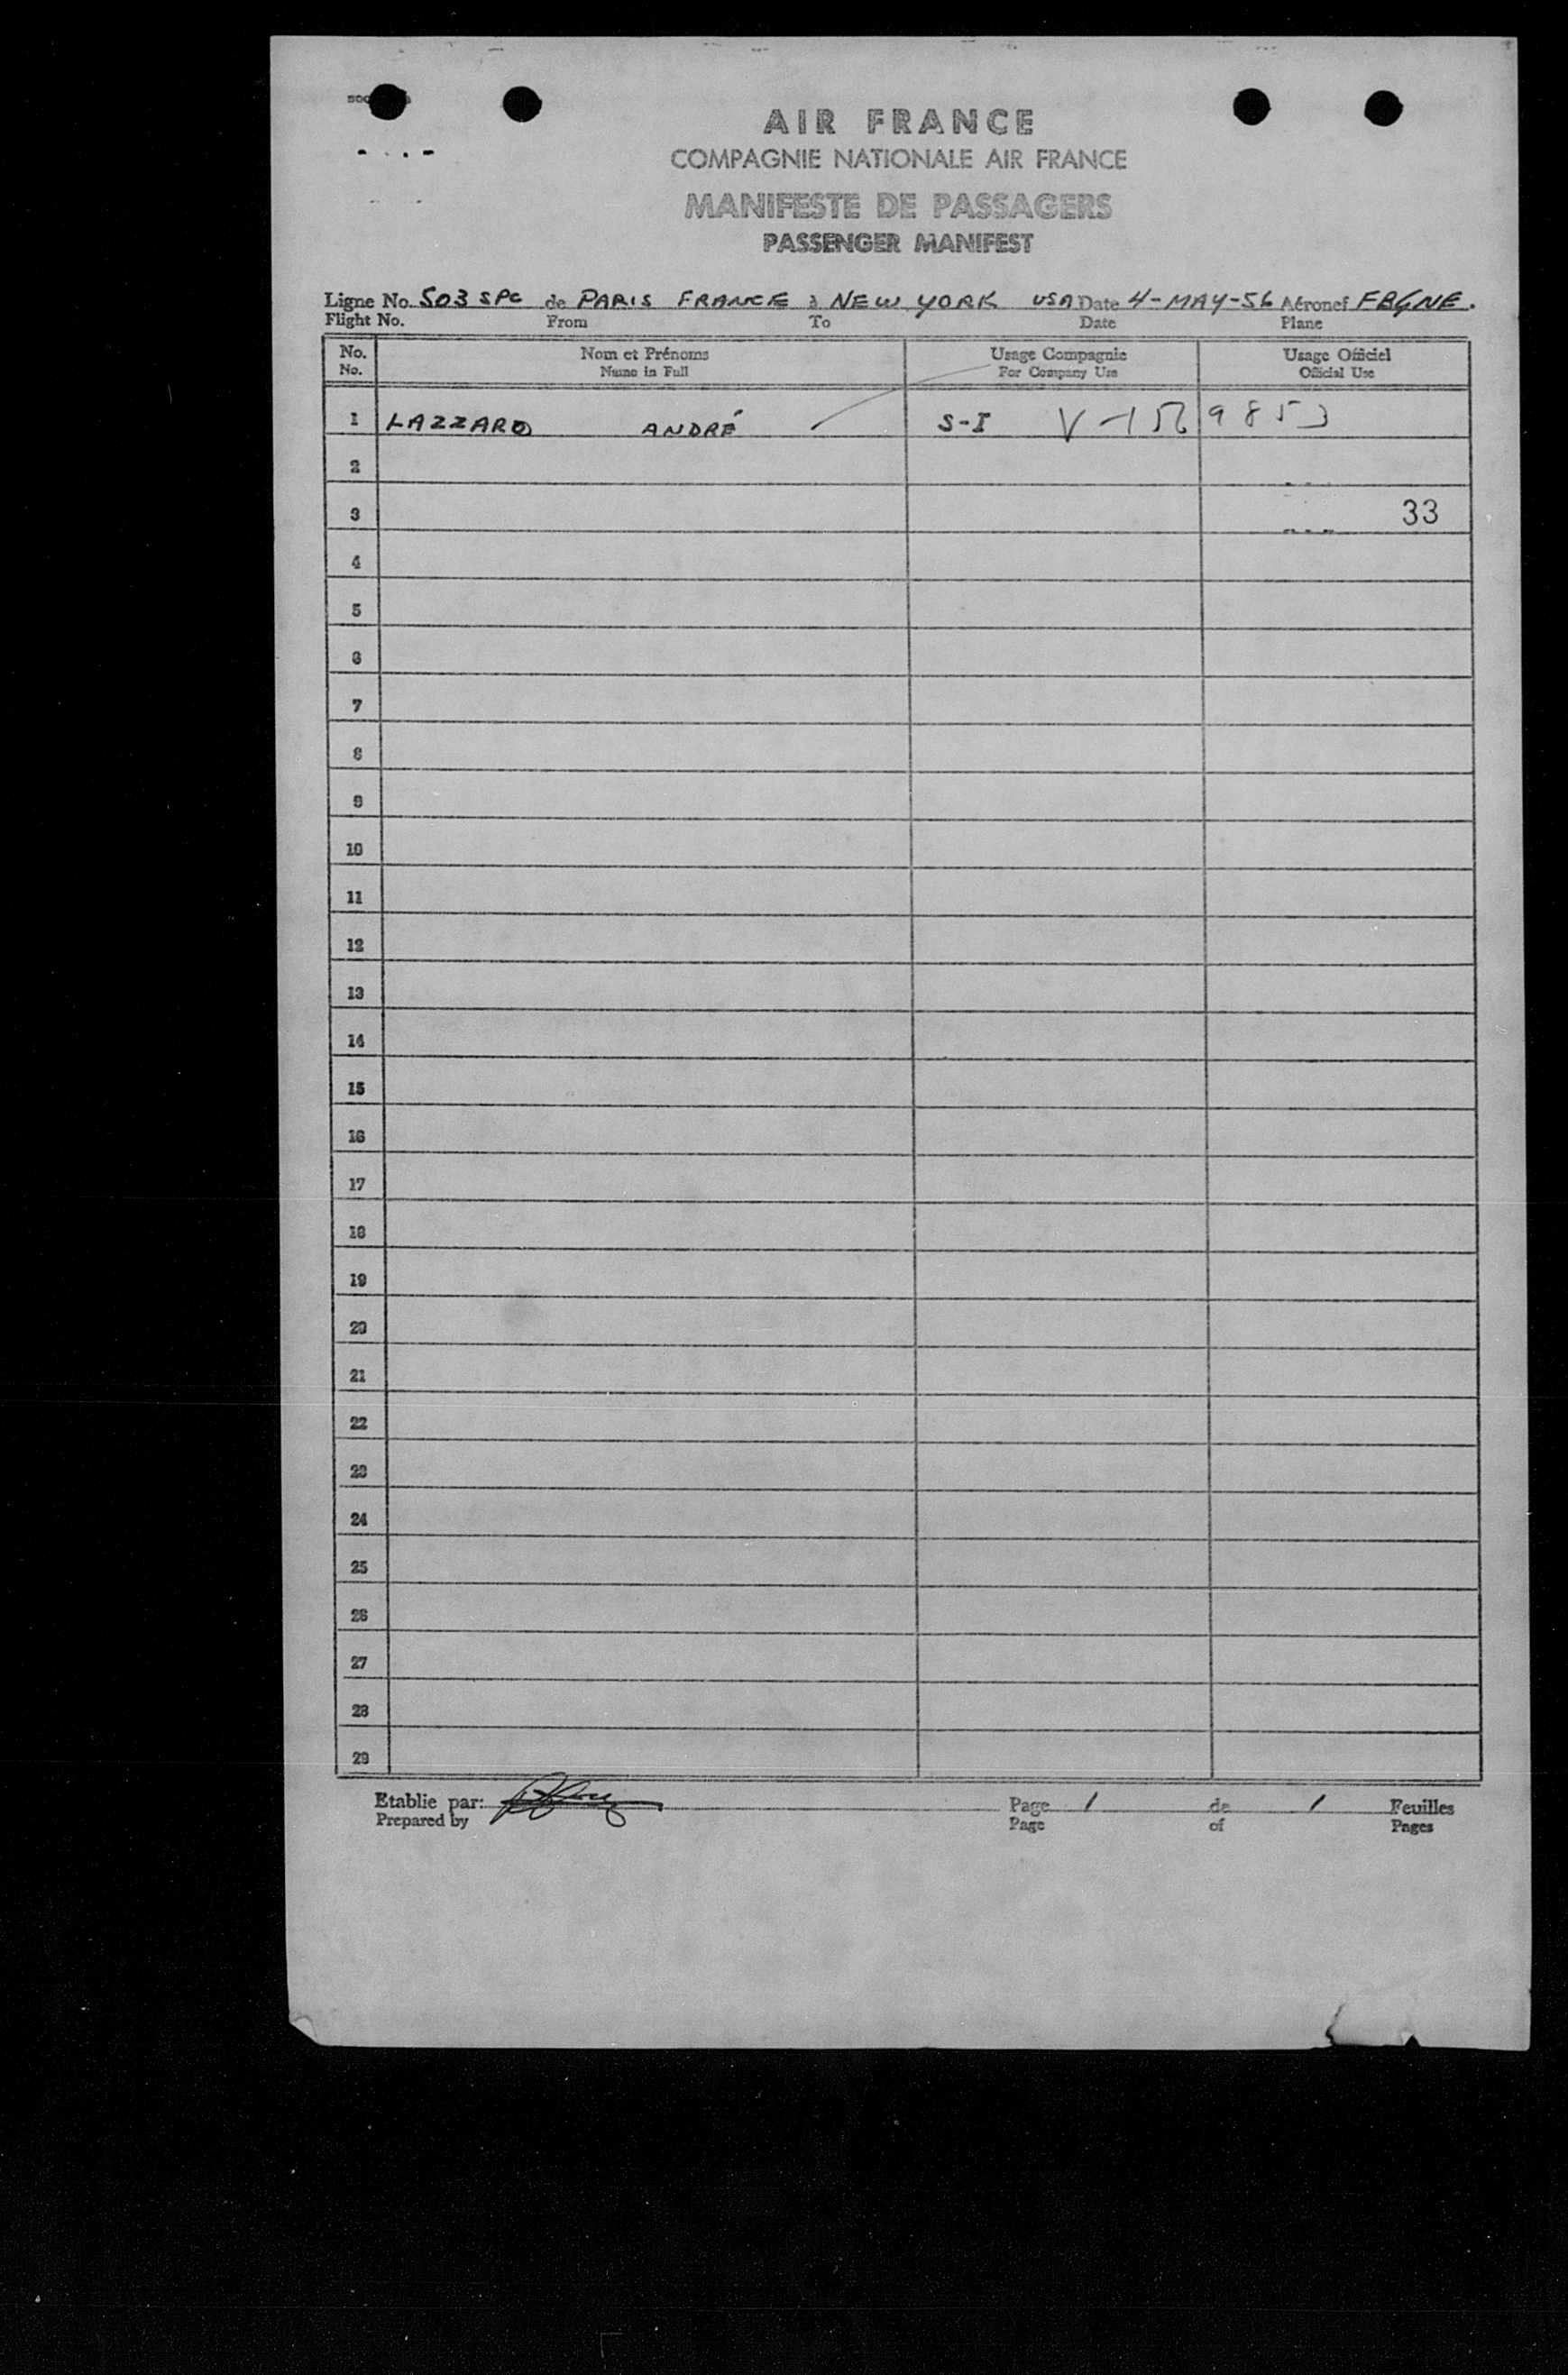 AIR FRANCE
COMPAGNIE NATIONALE AIR FRANCE
MANIFESTE DE PASSAGERS
PASSENGER MANIFEST
Ligne No. 503 SPC de PARIS FRANCE à NEW YORK USA Date 4-MAY-56 Aéronef FBGNE.
Flight No. From To Date Plane
No. Nom et Prénoms Usage Compagnie Usage Officiel
No. Name in Full For Company Use Official Use
1 LAZZARO ANDRÉ S-I V-156 9853
2
3 33
4
5
6
7
8
9
10
11
12
13
14
15
16
17
18
19
20
21
22
23
24
25
26
27
28
29
Etablie par: Page 1 de 1 Feuilles
Prepared by Page of Pages